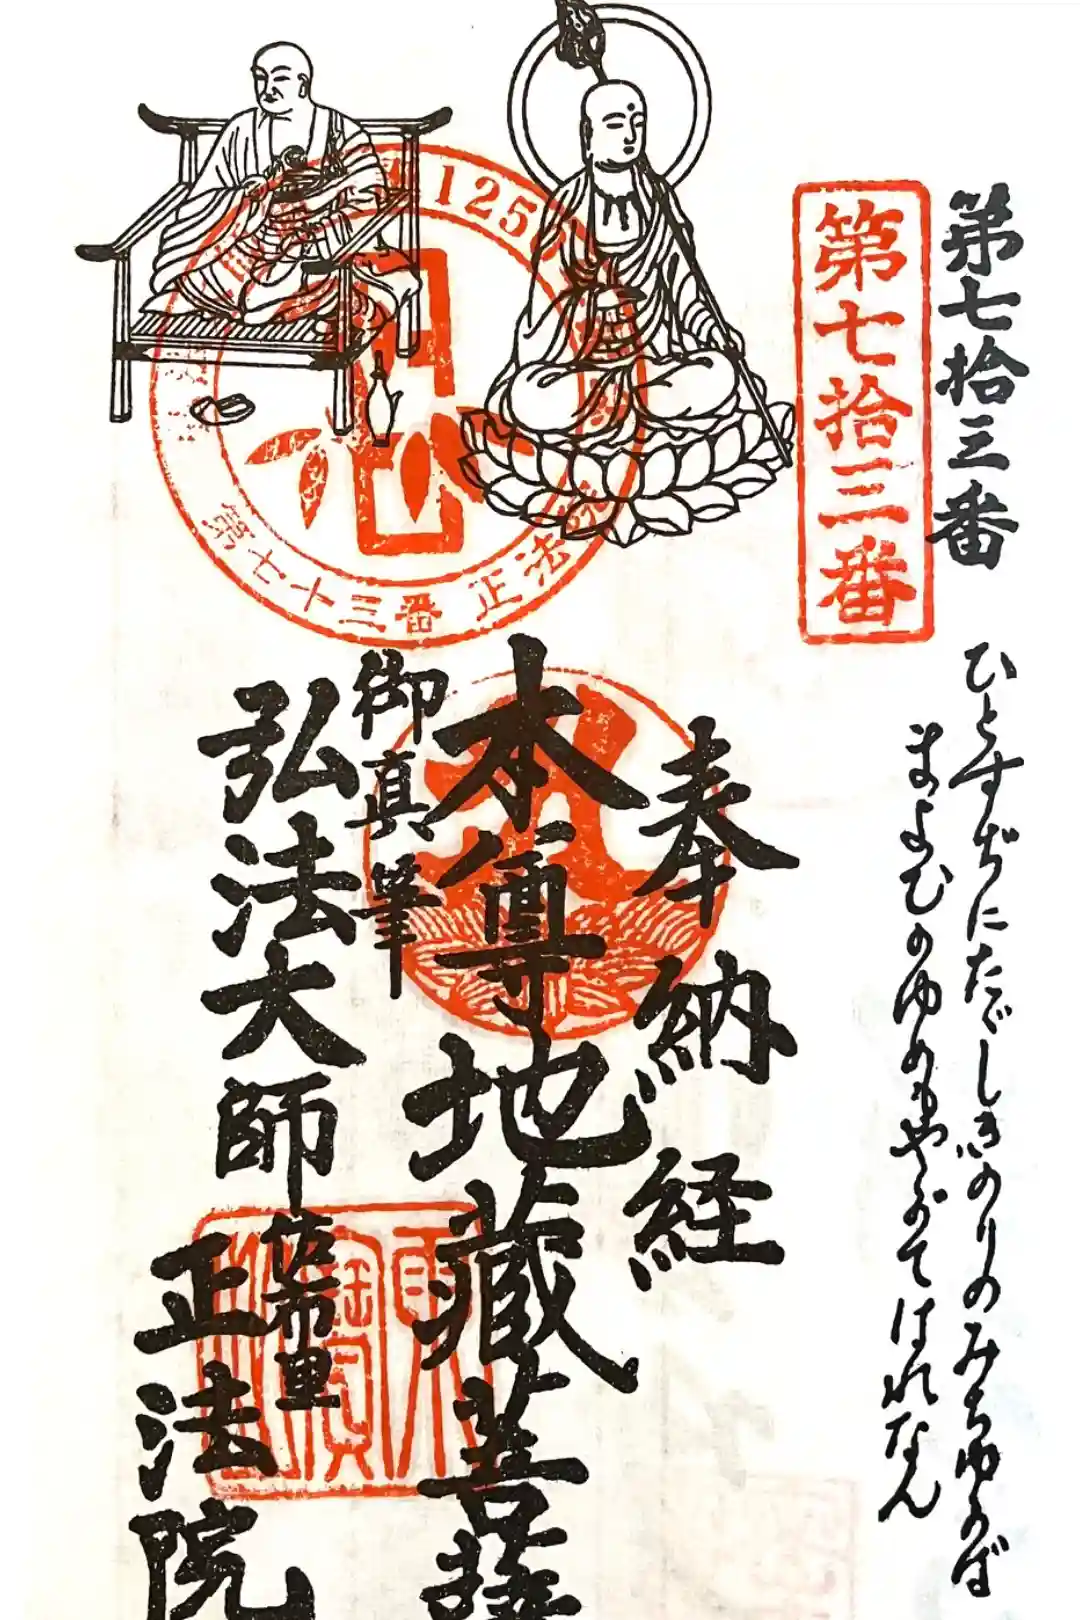 第七拾三番
第七拾三番
ひとすぢにただしきのりのみちゆかば
まよひのゆめもやがてはれなん
奉納経
本尊地蔵菩薩
御真筆
弘法大師
佐布里
正法院
125
第七十三番 正法